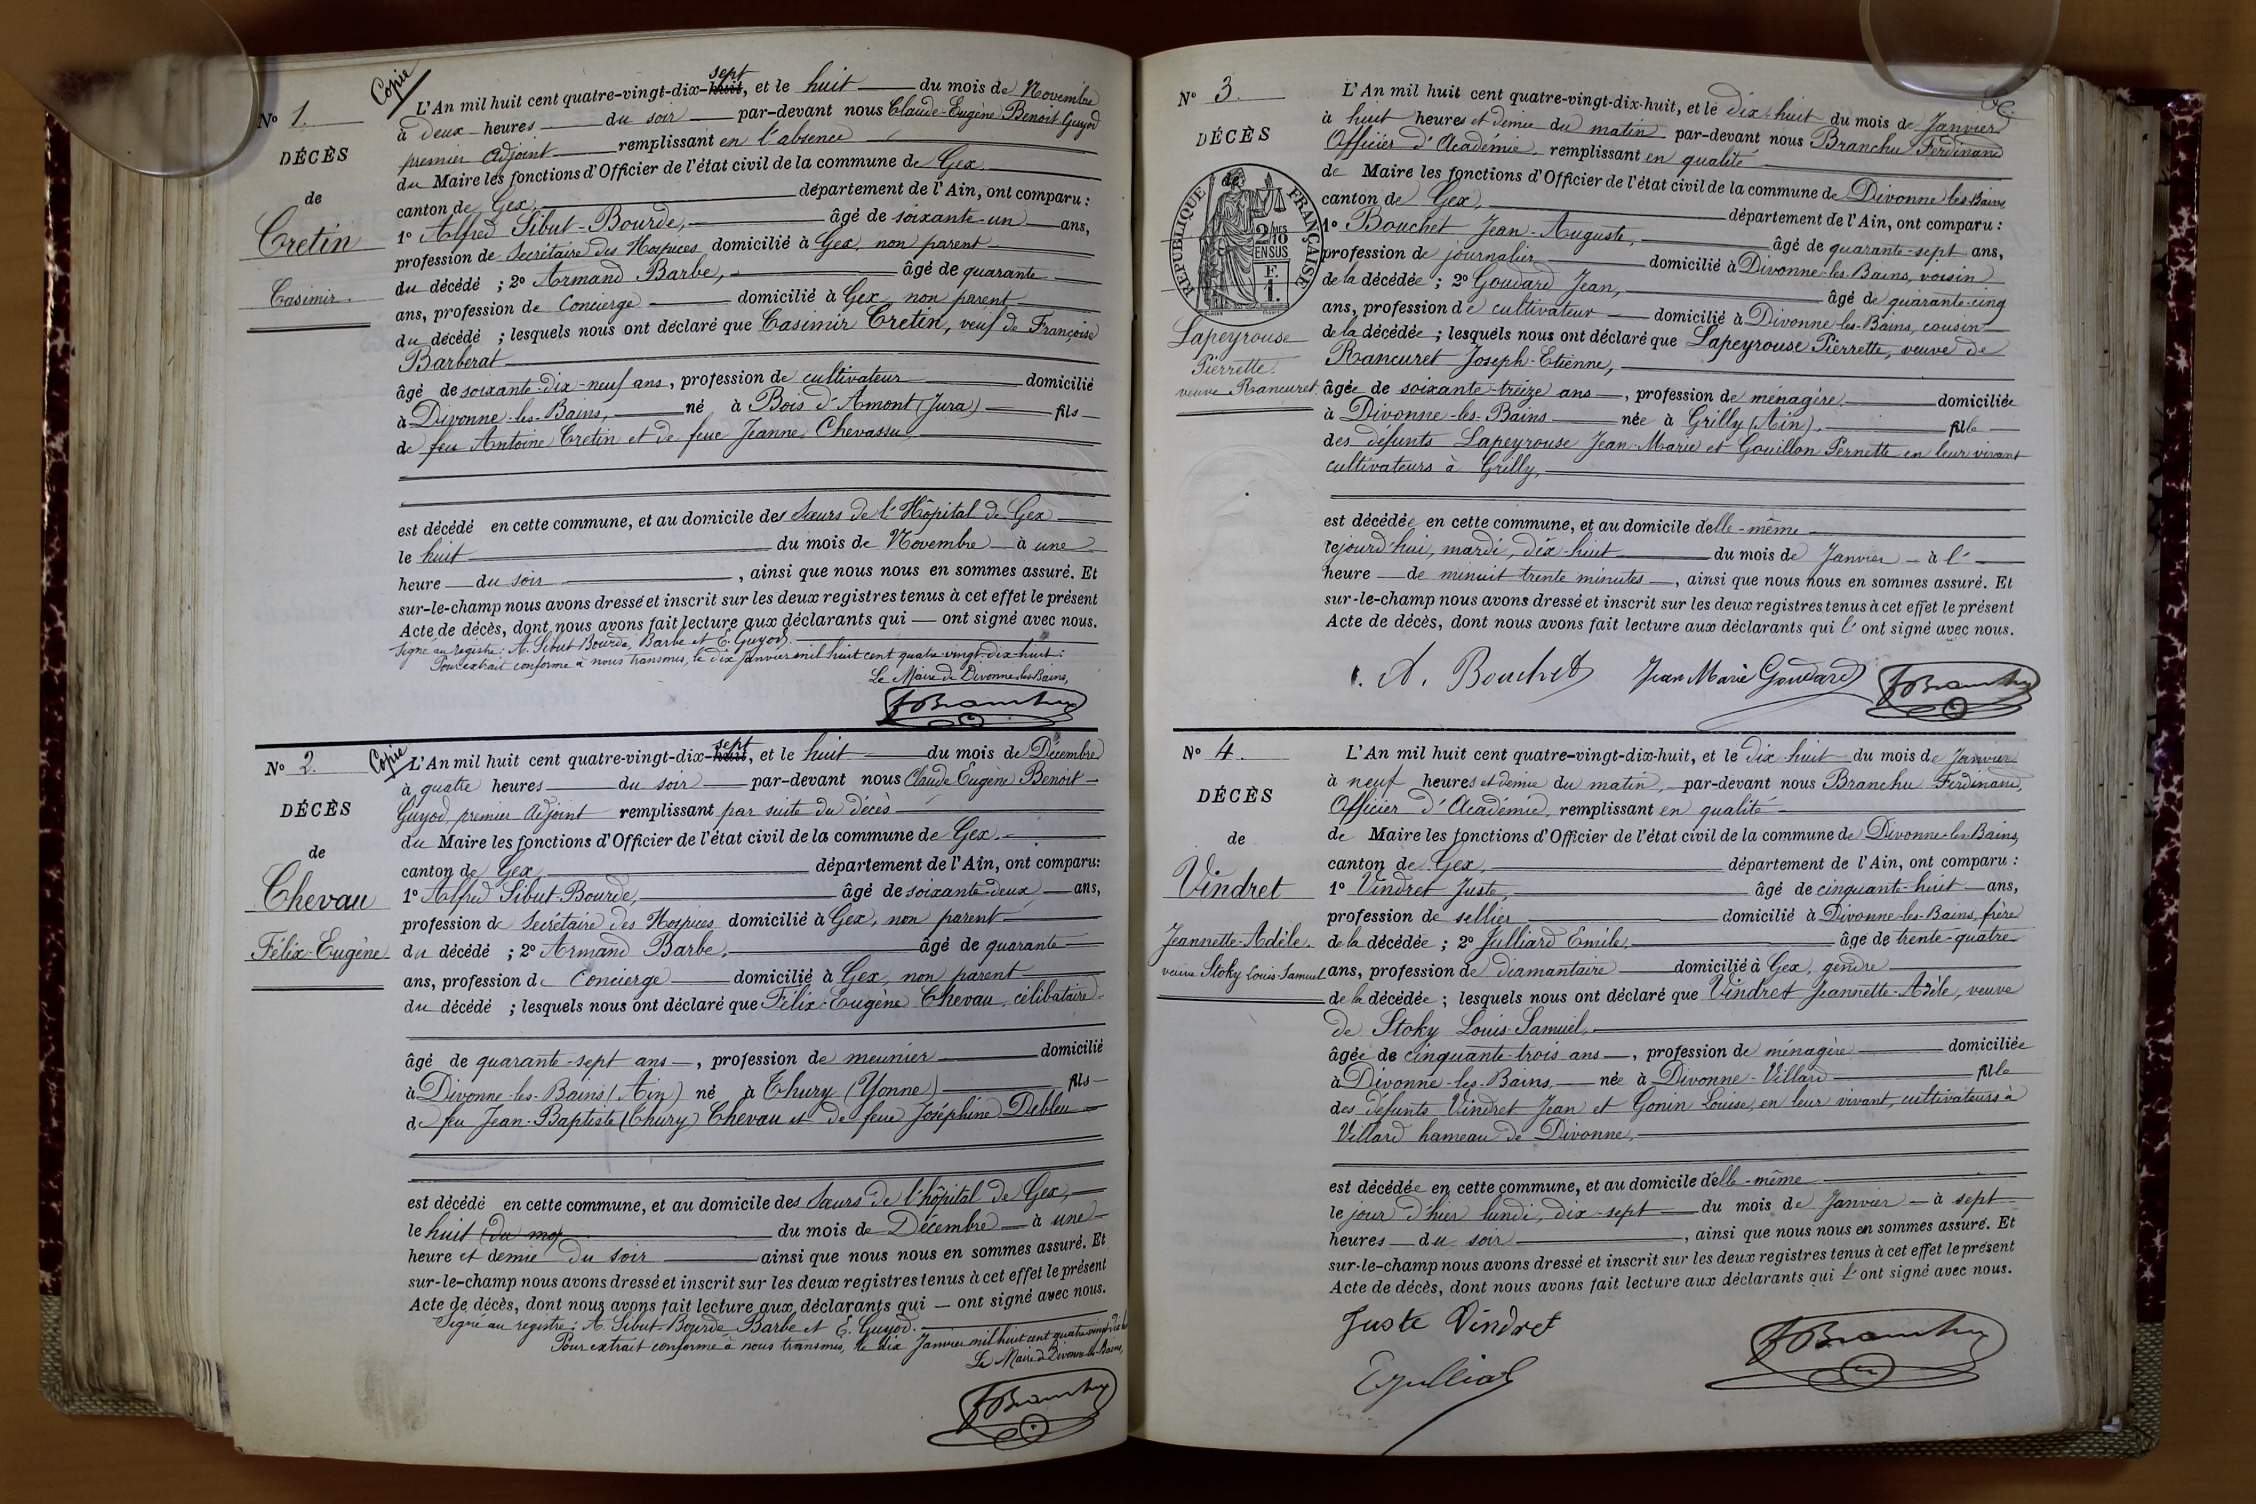 Copie
N° 1.
DÉCÈS
de
Cretin
Casimir.
L'An mil huit cent quatre-vingt-dix-huit sept, et le huit du mois de Novembre
à deux heures du soir par-devant nous Claude-Eugène Benoit Guyod
premier adjoint remplissant en l'absence
du Maire les fonctions d'Officier de l'état civil de la commune de Gex.
canton de Gex, département de l'Ain, ont comparu :
1° Alfred Sibut-Bourde, âgé de soixante-un ans,
profession de Secrétaire des Hospices domicilié à Gex, non parent
du décédé ; 2° Armand Barbe, âgé de quarante
ans, profession de Concierge domicilié à Gex, non parent
du décédé ; lesquels nous ont déclaré que Casimir Cretin, veuf de Françoise
Barberat
âgé de soixante-dix-neuf ans, profession de cultivateur domicilié
à Divonne-les-Bains, né à Bois d'Amont (Jura) fils
de feu Antoine Cretin et de feue Jeanne Chevassu,
est décédé en cette commune, et au domicile des Sœurs de l'Hôpital de Gex
le huit du mois de Novembre à une
heure du soir, ainsi que nous nous en sommes assuré. Et
sur-le-champ nous avons dressé et inscrit sur les deux registres tenus à cet effet le présent
Acte de décès, dont nous avons fait lecture aux déclarants qui — ont signé avec nous.
Signé au registre : A. Sibut Bourde, Barbe et E. Guyod.
Pour extrait conforme à nous transmis, le dix Janvier mil huit cent quatre-vingt-dix-huit.
Le Maire de Divonne-les-Bains,
F Branchu
Copie
N° 2.
DÉCÈS
de
Chevau
Félix-Eugène
L'An mil huit cent quatre-vingt-dix-huit sept, et le huit du mois de Décembre
à quatre heures du soir par-devant nous Claude Eugène Benoit
Guyod, premier Adjoint remplissant par suite du décès
du Maire les fonctions d'Officier de l'état civil de la commune de Gex.
canton de Gex, département de l'Ain, ont comparu:
1° Alfred Sibut-Bourde, âgé de soixante-deux ans,
profession de Secrétaire des Hospices domicilié à Gex, non parent
du décédé ; 2° Armand Barbe, âgé de quarante
ans, profession de Concierge domicilié à Gex, non parent
du décédé ; lesquels nous ont déclaré que Félix-Eugène Chevau, célibataire
âgé de quarante-sept ans, profession de meunier domicilié
à Divonne-les-Bains (Ain) né à Thury (Yonne) fils
de feu Jean-Baptiste (Thury) Chevau et de feue Joséphine Debleu
est décédé en cette commune, et au domicile des Sœurs de l'hôpital de Gex,
le huit du mois de Décembre à une
heure et demie du soir ainsi que nous nous en sommes assuré. Et
sur-le-champ nous avons dressé et inscrit sur les deux registres tenus à cet effet le présent
Acte de décès, dont nous avons fait lecture aux déclarants qui — ont signé avec nous.
Signé au registre : A. Sibut-Bourde Barbe et E. Guyod.
Pour extrait conforme à nous transmis, le dix Janvier mil huit cent quatre-vingt-dix
Le Maire de Divonne-les-Bains,
F Branchu
N° 3.
DÉCÈS
de
RÉPUBLIQUE FRANÇAISE
2/10 EN SUS
F. 1.
Lapeyrouse
Pierrette
veuve Rancuret.
L'An mil huit cent quatre-vingt-dix-huit, et le dix-huit du mois de Janvier
à huit heures et demie du matin par-devant nous Branchu Ferdinand
Officier d'Académie, remplissant en qualité
de Maire les fonctions d'Officier de l'état civil de la commune de Divonne-les-Bains
canton de Gex, département de l'Ain, ont comparu :
1° Bouchet Jean-Auguste, âgé de quarante-sept ans,
profession de journalier domicilié à Divonne-les-Bains, voisin
de la décédée ; 2° Goudard Jean, âgé de quarante-cinq
ans, profession de cultivateur domicilié à Divonne-les-Bains, cousin
de la décédée ; lesquels nous ont déclaré que Lapeyrouse Pierrette, veuve de
Rancuret Joseph-Etienne,
âgée de soixante-treize ans, profession de ménagère domiciliée
à Divonne-les-Bains née à Grilly (Ain). fille
des défunts Lapeyrouse Jean-Marie et Gouillon Pernette en leur vivant
cultivateurs à Grilly,
est décédée en cette commune, et au domicile d'elle-même
cejourd'hui, mardi, dix-huit du mois de Janvier à l'
heure de minuit trente minutes, ainsi que nous nous en sommes assuré. Et
sur-le-champ nous avons dressé et inscrit sur les deux registres tenus à cet effet le présent
Acte de décès, dont nous avons fait lecture aux déclarants qui l' ont signé avec nous.
A. Bouchet Jean Marie Goudard F Branchu
N° 4.
DÉCÈS
de
Vindret
Jeannette-Adèle.
veuve Stoky Louis-Samuel
L'An mil huit cent quatre-vingt-dix-huit, et le dix huit du mois de Janvier
à neuf heures et demie du matin, par-devant nous Branchu Ferdinand,
Officier d'Académie, remplissant en qualité
de Maire les fonctions d'Officier de l'état civil de la commune de Divonne-les-Bains,
canton de Gex, département de l'Ain, ont comparu :
1° Vindret Juste, âgé de cinquante-huit ans,
profession de sellier domicilié à Divonne-les-Bains, frère
de la décédée ; 2° Julliard Emile, âgé de trente-quatre
ans, profession de diamantaire domicilié à Gex, gendre
de la décédée ; lesquels nous ont déclaré que Vindret Jeannette-Adèle, veuve
de Stoky Louis Samuel,
âgée de cinquante-trois ans, profession de ménagère domiciliée
à Divonne-les-Bains, née à Divonne-Villard fille
des défunts Vindret Jean et Gonin Louise, en leur vivant, cultivateurs à
Villard hameau de Divonne,
est décédée en cette commune, et au domicile d'elle-même
le jour d'hier lundi, dix-sept du mois de Janvier à sept
heures du soir, ainsi que nous nous en sommes assuré. Et
sur-le-champ nous avons dressé et inscrit sur les deux registres tenus à cet effet le présent
Acte de décès, dont nous avons fait lecture aux déclarants qui l' ont signé avec nous.
Juste Vindret
F Branchu
E Julliard